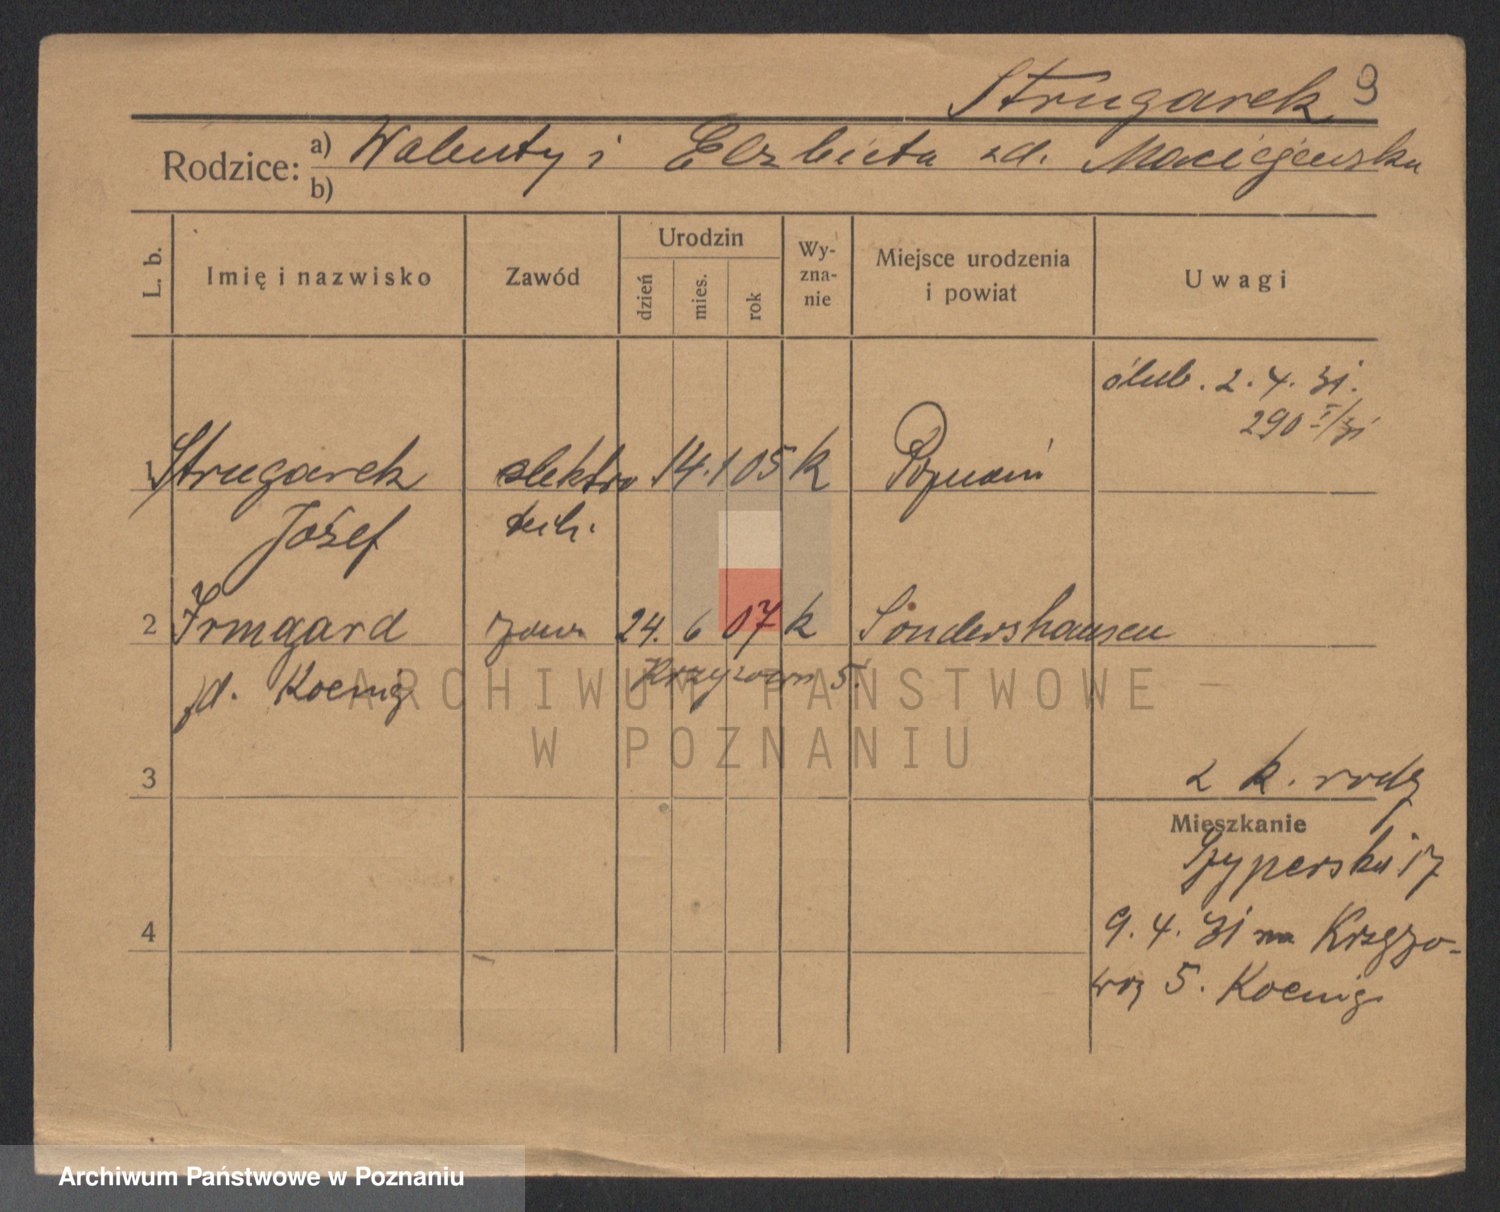 Strugarek 9
Rodzice: a) Walenty i Elzbieta zd. Maciejewska
b)
L. b.
Imię i nazwisko
Zawód
Urodzin
dzień
mies.
rok
Wy-
zna-
nie
Miejsce urodzenia
i powiat
Uwagi
ślub. 2. 4. 31.
290 I/31
1 Strugarek elektro 14. 1 05 k Poznań
Józef tech.
2 Irmgard żona 24. 6 07 k Sondershausen
zd. Koenig Krzyżowa 5.
3
z k. rodz
Mieszkanie
Szyperska 17
4
9. 4. 31 na Krzyżo-
wą 5. Koenig
ARCHIWUM PAŃSTWOWE
W POZNANIU
Archiwum Państwowe w Poznaniu